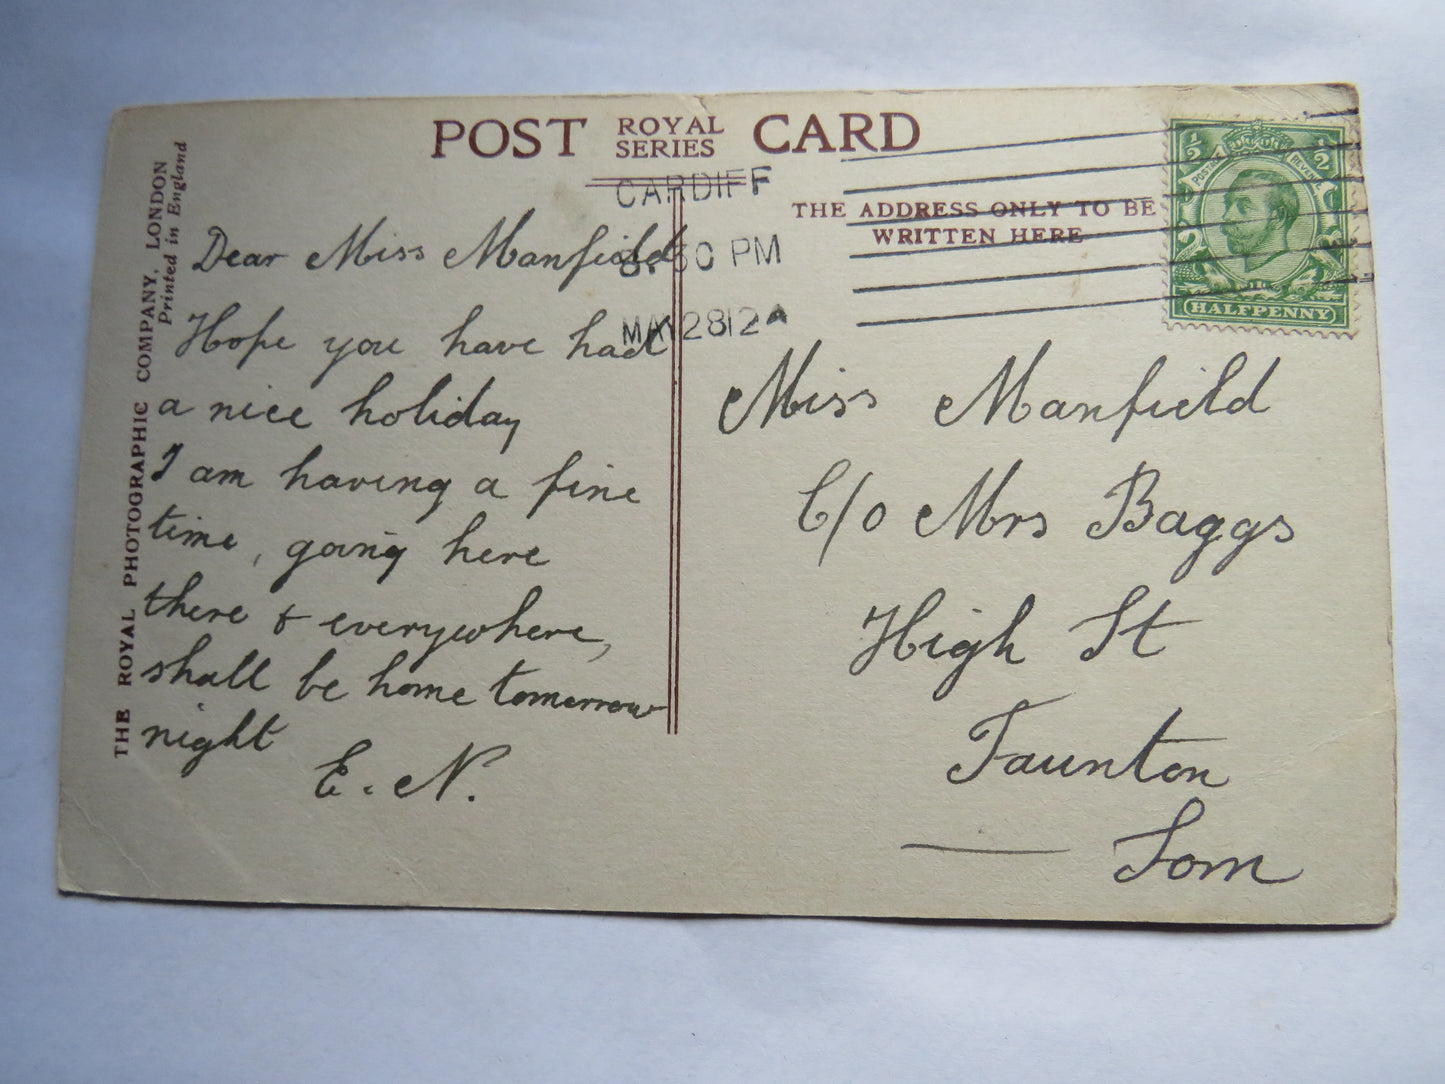 POST ROYAL SERIES CARD
THE ROYAL PHOTOGRAPHIC COMPANY, LONDON
Printed in England
CARDIFF
30 PM
MAY 28 12
THE ADDRESS ONLY TO BE
WRITTEN HERE
1/2 1/2
POSTAGE REVENUE
HALFPENNY
Dear Miss Manfield
Hope you have had
a nice holiday
I am having a fine
time, going here
there & everywhere,
shall be home tomorrow
night
E. N.
Miss Manfield
C/o Mrs Baggs
High St
Taunton
Som